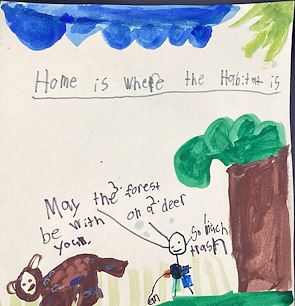 Home is where the Habitat is
May the forest
be with on a deer
you
So much
trash